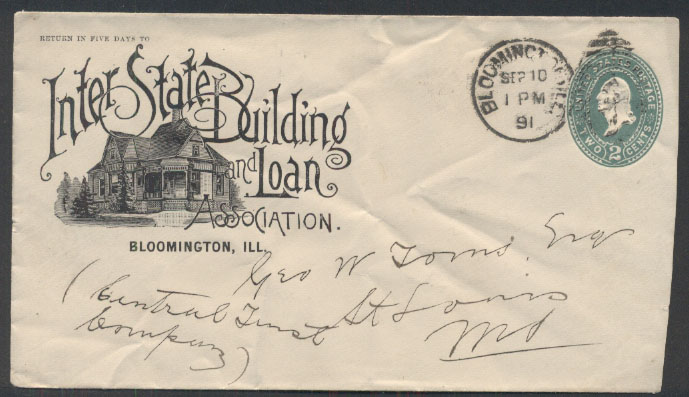 RETURN IN FIVE DAYS TO
Inter State Building
and Loan
ASSOCIATION.
BLOOMINGTON, ILL.
BLOOMINGTON ILL.
SEP 10
1 PM
91
UNITED STATES POSTAGE
TWO 2 CENTS
Geo W Toms. Esq
St Louis
Mo
(Central Trust
Company)